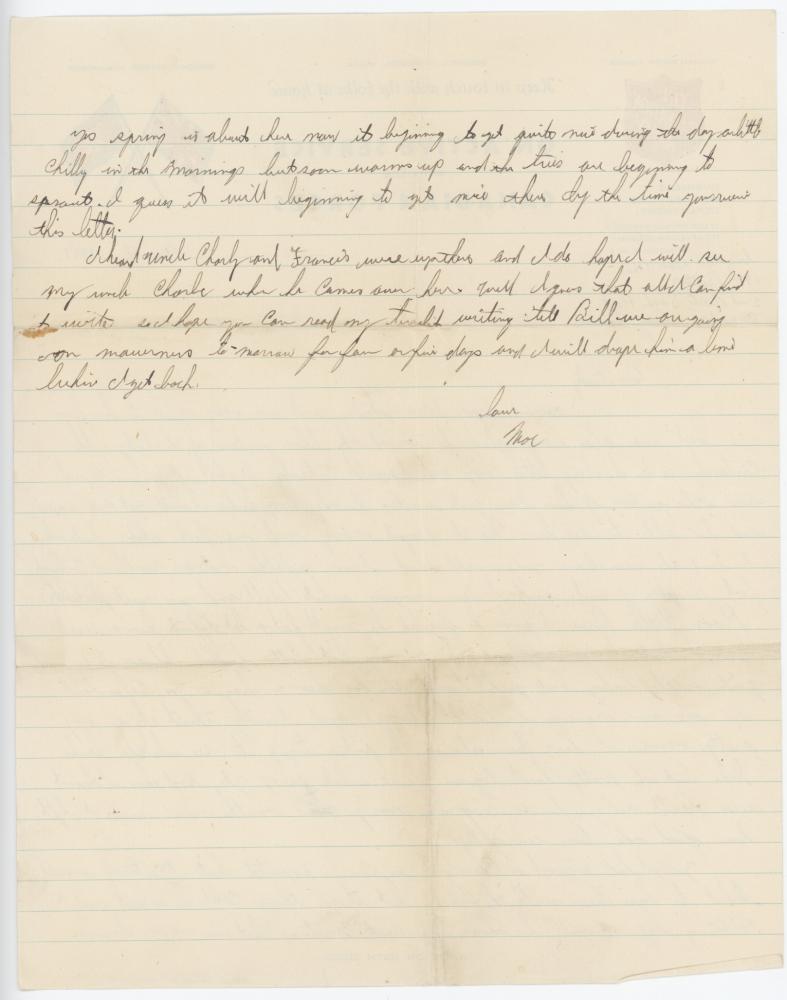 yes spring is about here now it begining to get quite nice during the day a little
chilly in the mornings but soon warms up and the trees are begenning to
sprout. I guess it will beginning to get nice there by the time you
this letter.
I heard uncle Charly and Francis were and I do hope I will see
my uncle Charlie when he comes over here. Well I guess that all I can find
to write so I hope you can read my writing. tell Bill we are going
on to-morrow for four or five days and I will drope him a line
when I get back.
Love
Moe